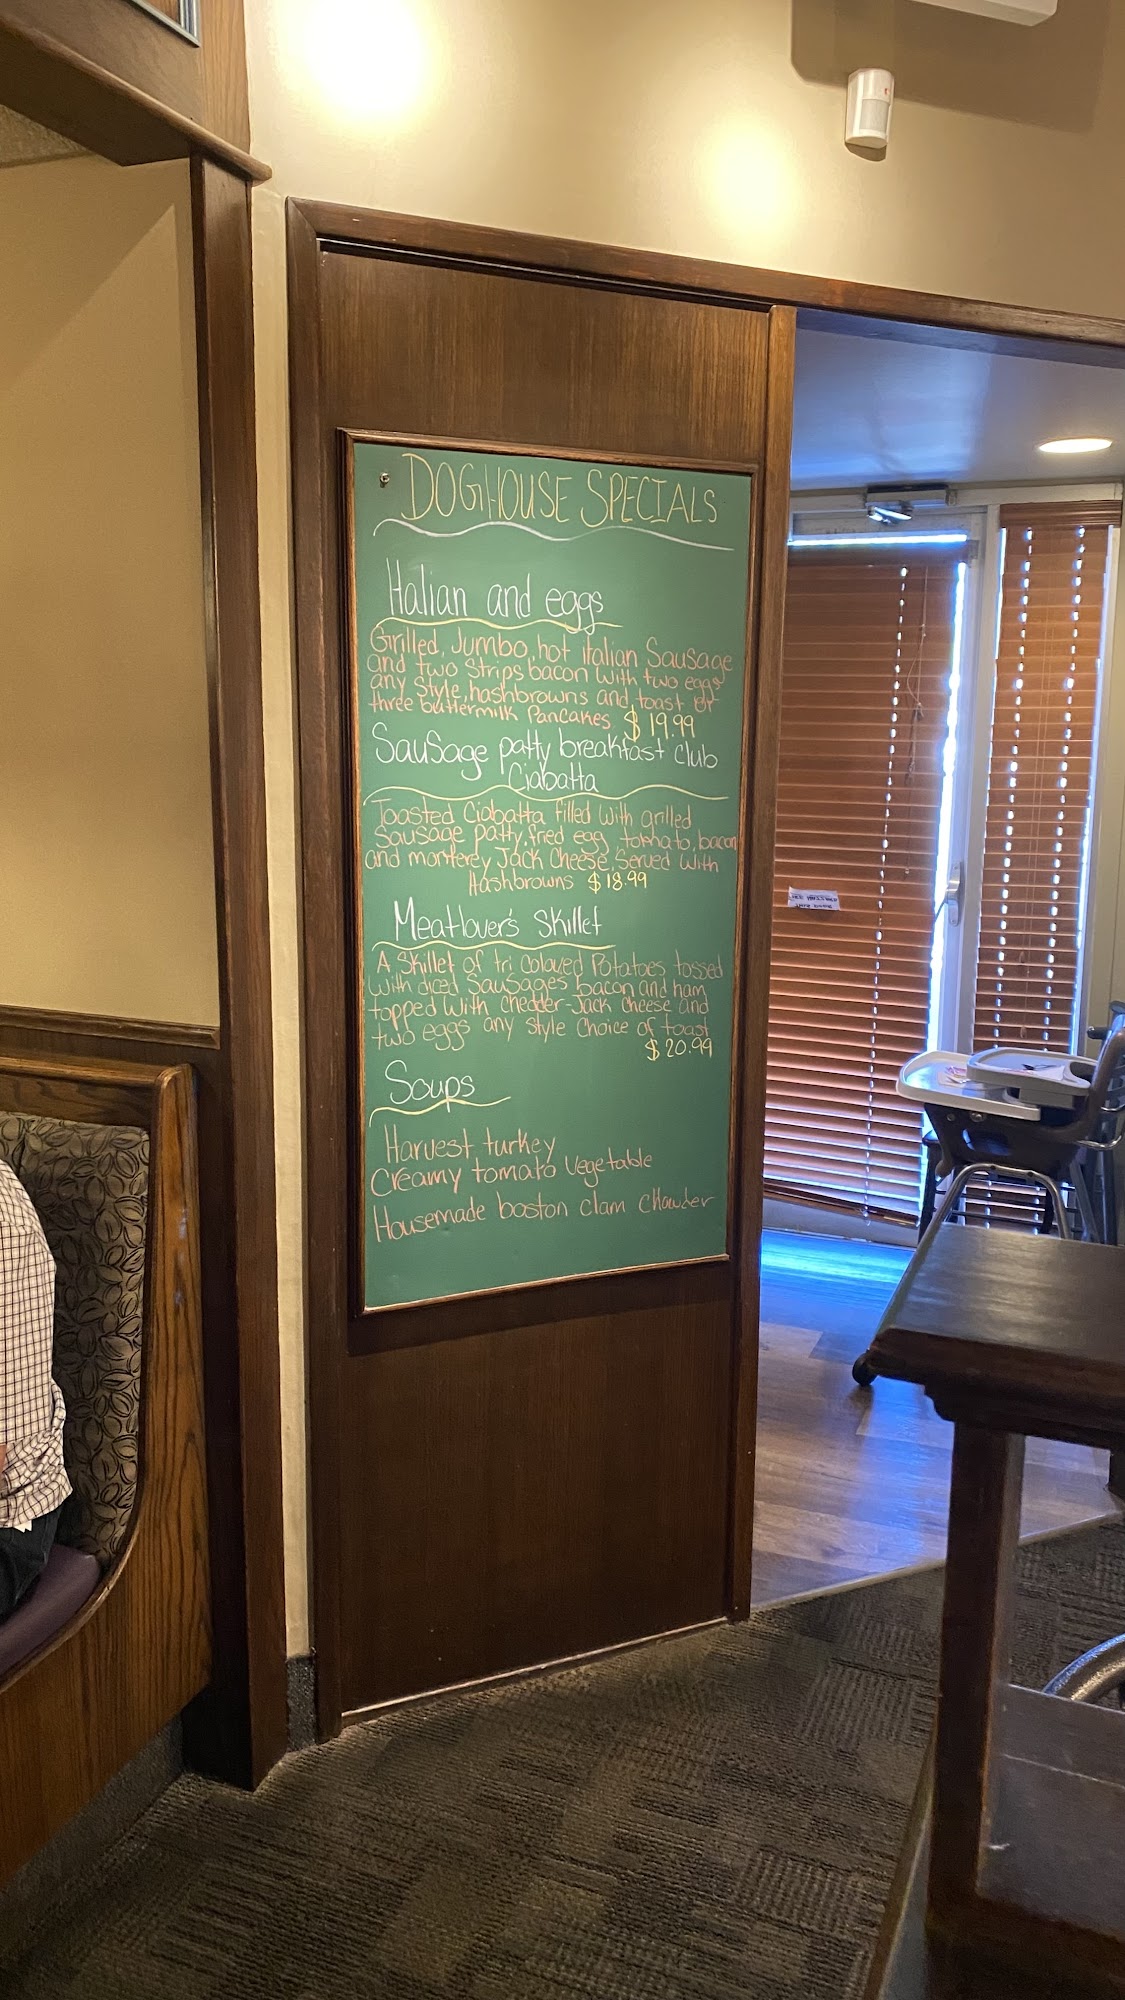 DOGHOUSE SPECIALS
Italian and eggs
Grilled, Jumbo, hot italian Sausage
and two Strips bacon with two eggs
any Style, hashbrowns and toast or
three buttermilk Pancakes. $19.99
Sausage patty breakfast club
Ciabatta
Toasted Ciabatta filled with grilled
Sausage patty, fried egg, tomato, bacon
and monterey Jack Cheese, Served with
Hashbrowns $18.99
Meatlover's Skillet
A Skillet of tri Colored Potatoes tossed
with diced Sausages bacon and ham
topped with chedder-Jack Cheese and
two eggs any style Choice of toast
$20.99
Soups
Harvest turkey
Creamy tomato Vegetable
Housemade boston clam Chowder